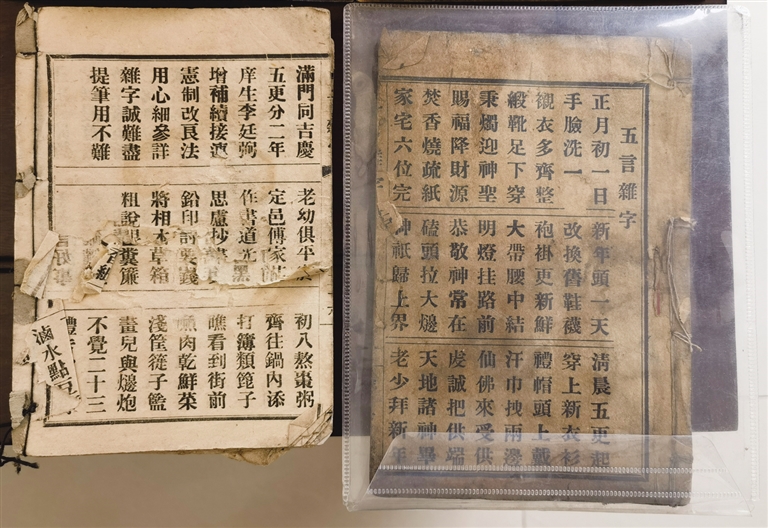 滿門同吉慶 老幼俱平 初八熬棗粥
五更分二年 定邑傳家 齊往鍋內添
庠生李廷弼 作書道光 打簿類篦子
增補續接連 思慮抄 瞧看到街前
憲制改良法 鉛印討要錢 肉乾鮮菜
用心細參詳 將相本草箱 淺筐簁子籃
雜字誠難盡 粗說 簾 畫兒與爆炮
提筆用不難 不覺二十三
滷水點豆
五言雜字
正月初一日 新年頭一天 清晨五更起
手臉洗一 改換舊鞋襪 穿上新衣衫
襯衣多齊整 袍褂更新鮮 禮帽頭上戴
緞靴足下穿 大帶腰中結 汗巾拽兩邊
秉燭迎神聖 明燈挂路前 仙佛來受供
賜福降財源 恭敬神常在 虔誠把供端
焚香燒疏紙 磕頭拉大邊 天地諸神畢
家宅六位完 神祇歸上界 老少拜新年